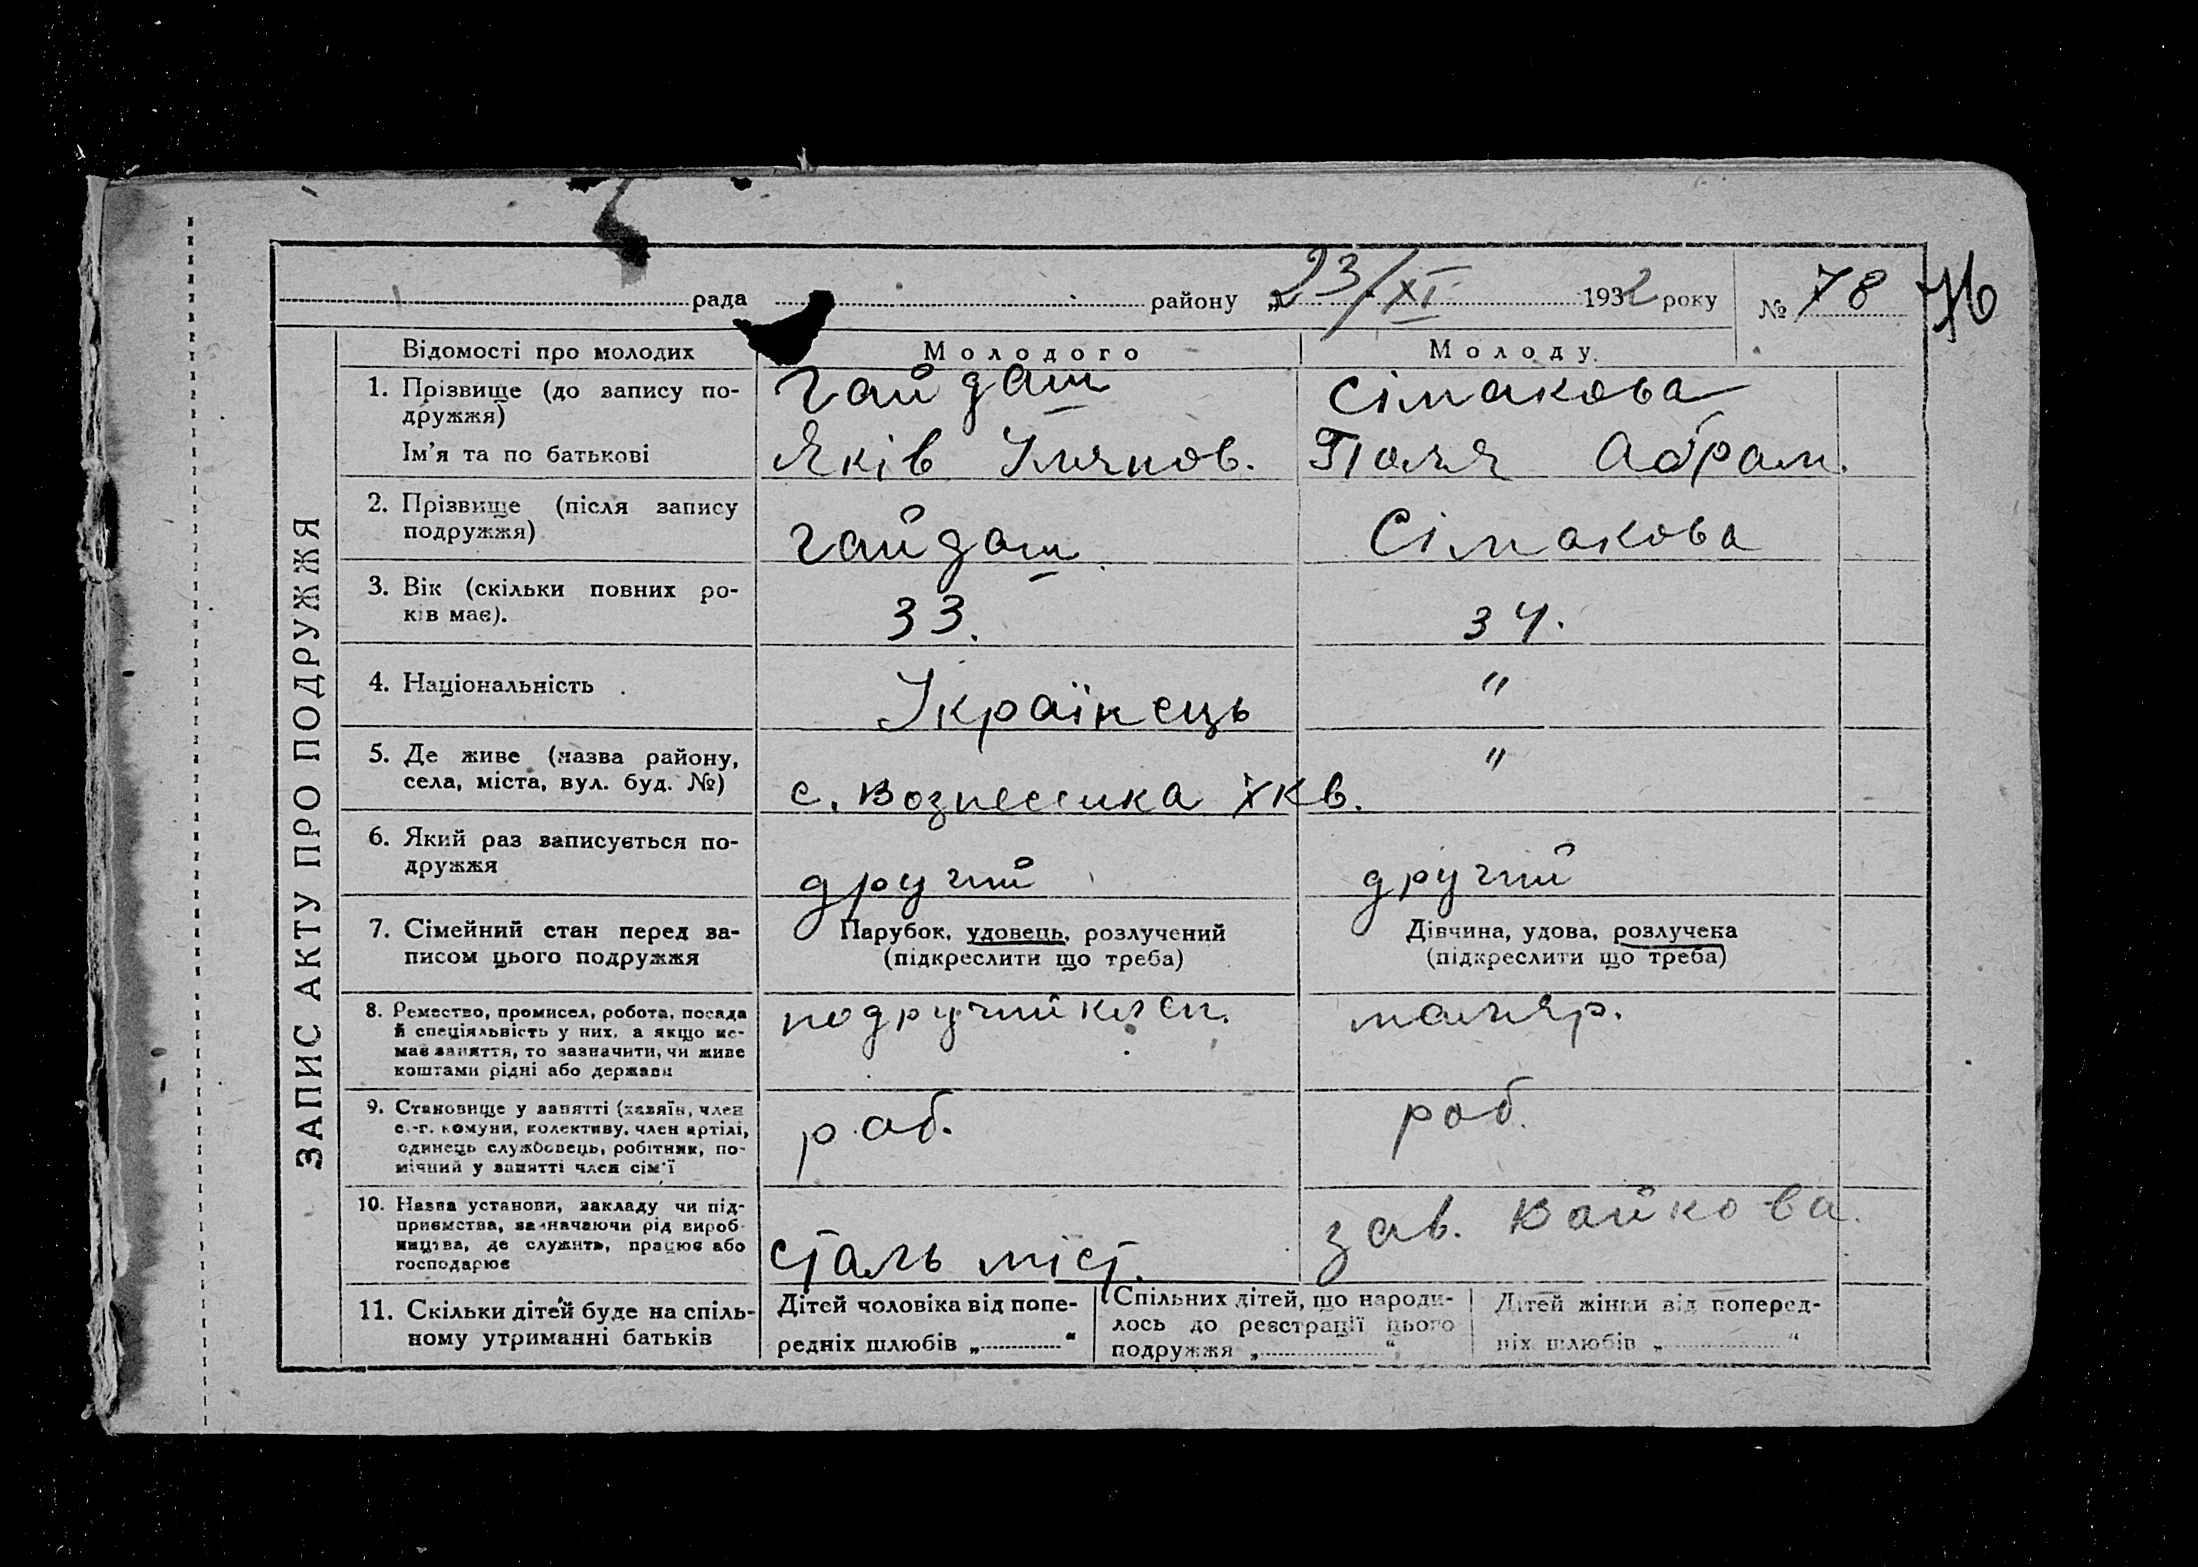 рада району „23/XI 1932 року № 78 76
ЗАПИС АКТУ ПРО ПОДРУЖЖЯ
Відомості про молодих Молодого Молоду
1. Прізвище (до запису по- Гайдаш Сімакова
дружжя)
Ім'я та по батькові Яків Улянов. Поля Абрам.
2. Прізвище (після запису
подружжя) Гайдаш Сімакова
3. Вік (скільки повних ро-
ків має). 33. 34.
4. Національність Українець "
5. Де живе (назва району, "
села, міста, вул. буд. №) с. Вознесенка Xкв.
6. Який раз записується по-
дружжя другий другий
7. Сімейний стан перед за- Парубок, удовець, розлучений Дівчина, удова, розлучена
писом цього подружжя (підкреслити що треба) (підкреслити що треба)
8. Ремество, промисел, робота, посада подручний клеп. маляр.
й спеціяльність у них, а якщо не-
має заняття, то зазначити, чи живе
коштами рідні або держави
9. Становище у занятті (хазяїн, член раб. роб.
с.-г. комуни, колективу, член артілі,
одинець службовець, робітник, по-
мічний у занятті член сім'ї
10. Назва установи, закладу чи під- зав. Войкова.
приємства, зазначаючи рід вироб-
ництва, де служить, працює або сталь міст.
господарює
11. Скільки дітей буде на спіль- Дітей чоловіка від попе- Спільних дітей, що народи- Дітей жінки від поперед-
ному утриманні батьків редніх шлюбів „ “ лось до реєстрації цього ніх шлюбів „ “
подружжя „ “